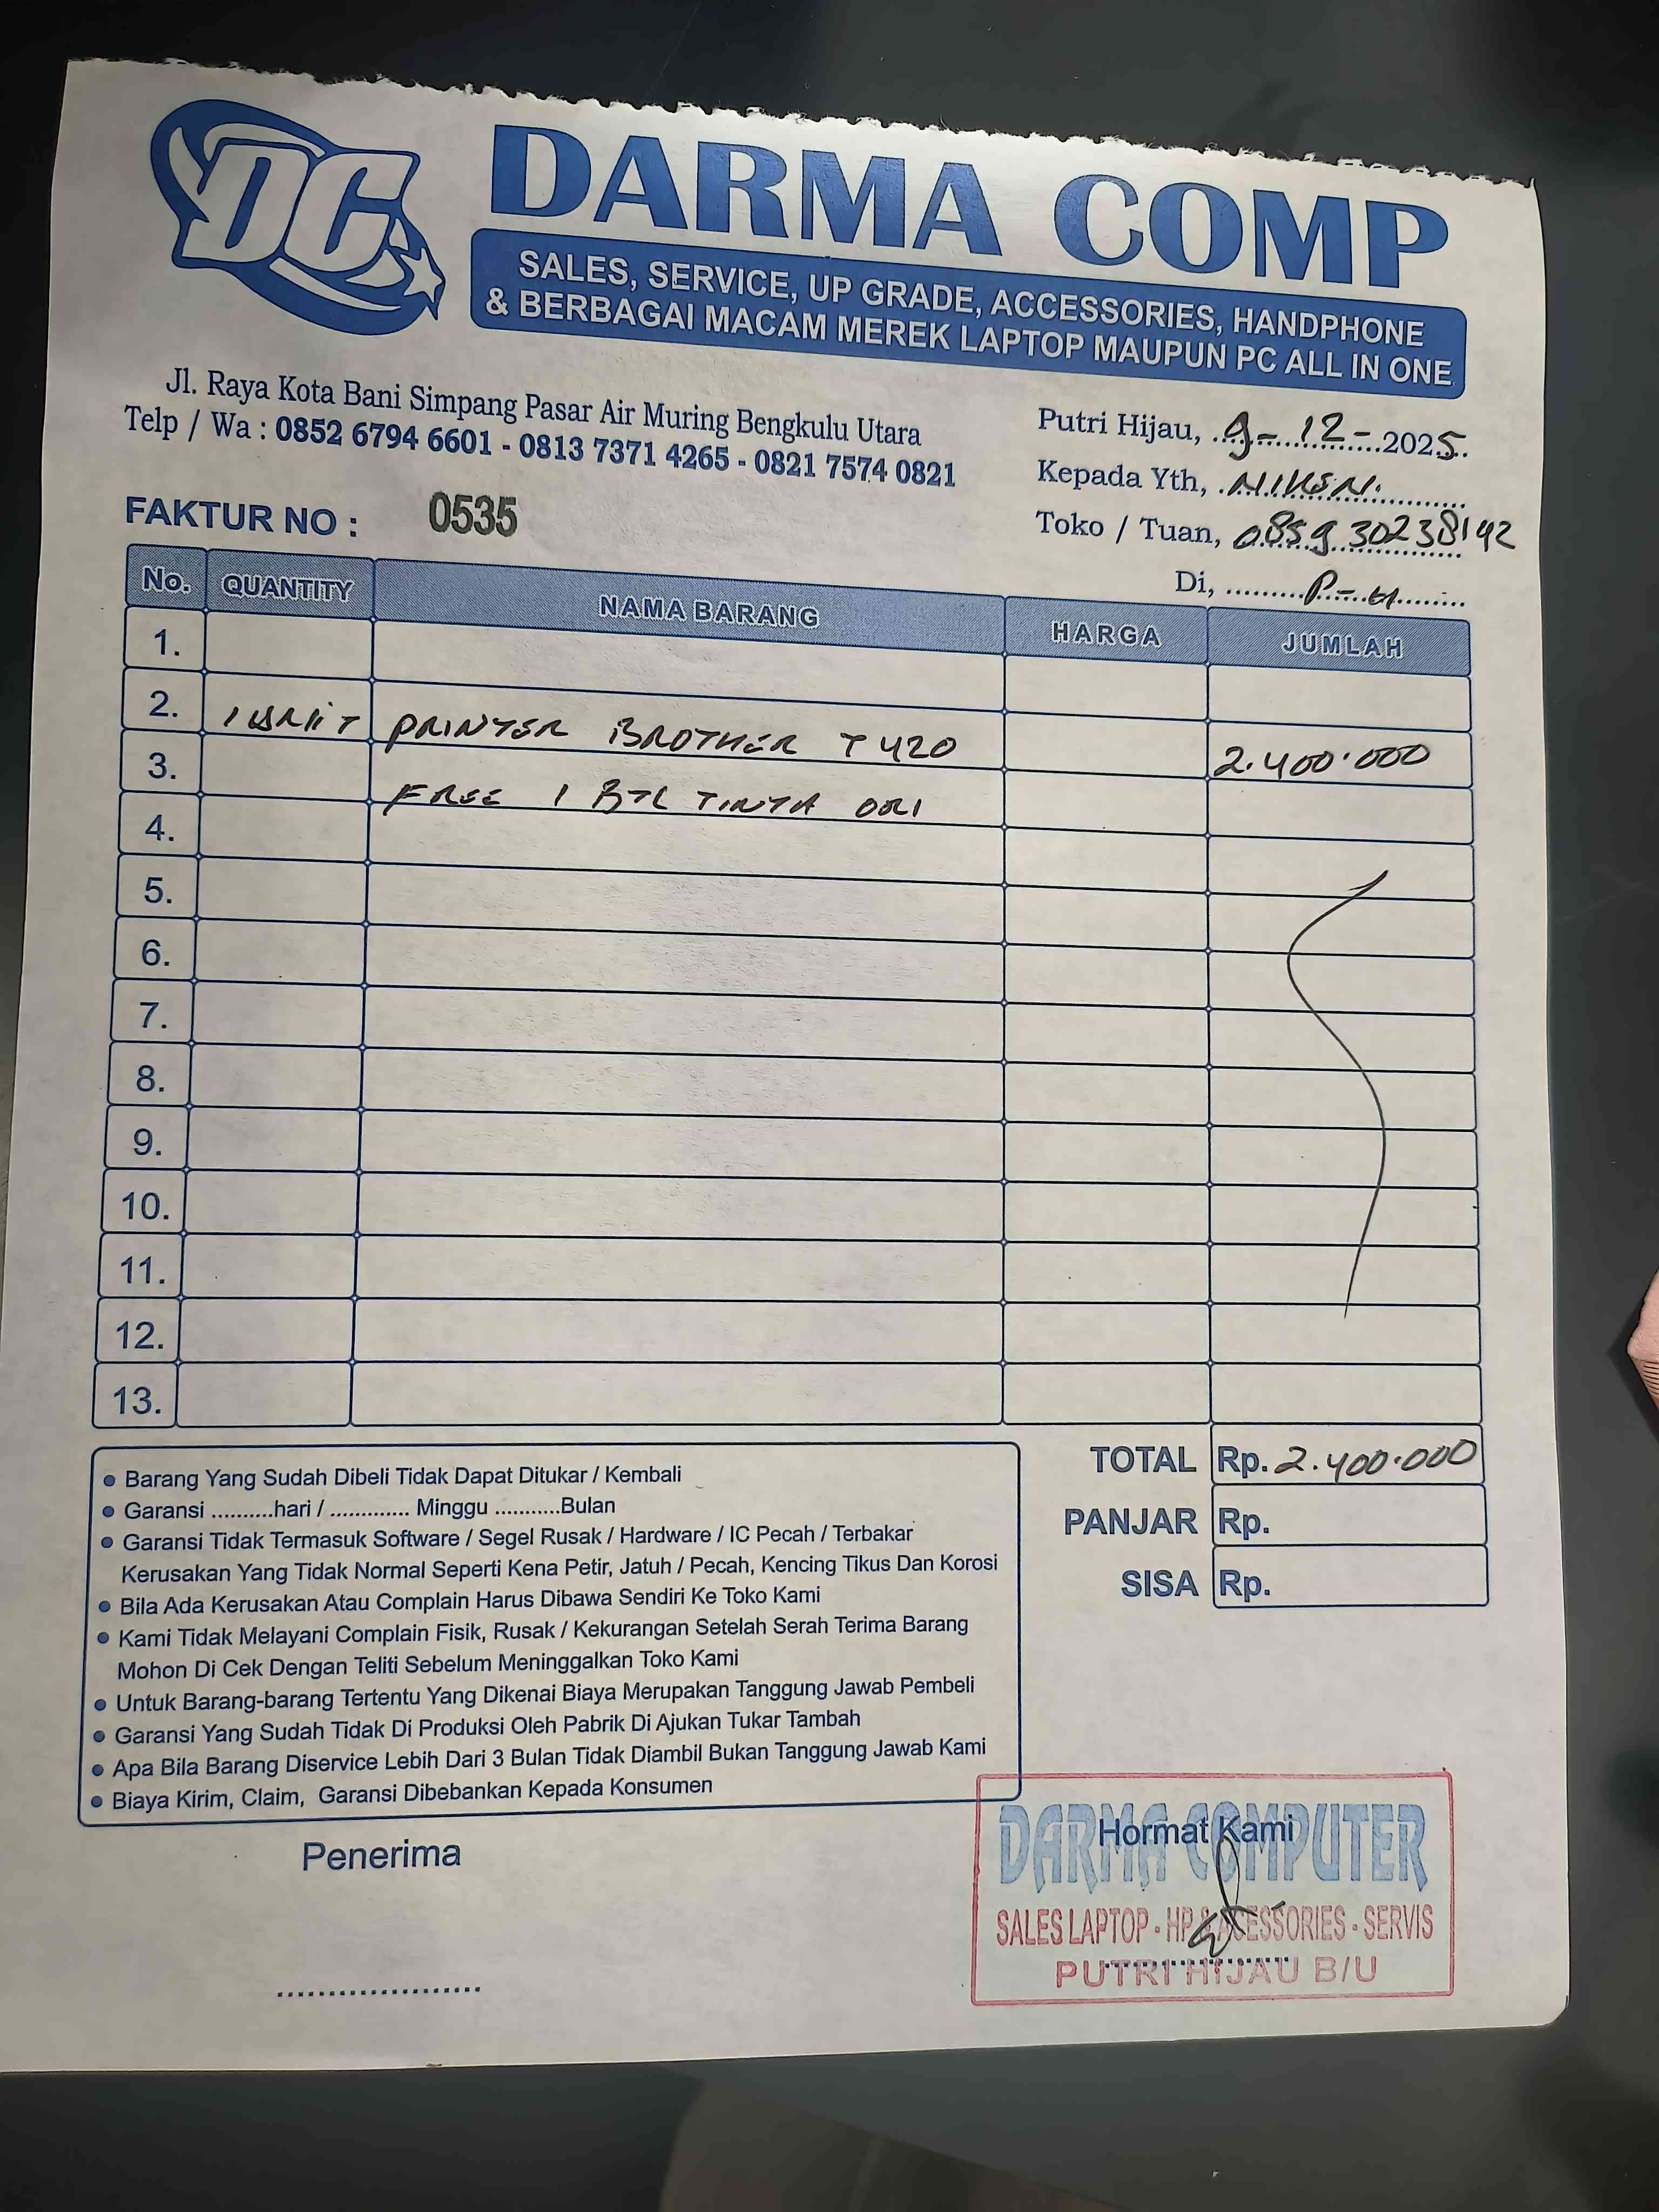 DC
DARMA COMP
SALES, SERVICE, UP GRADE, ACCESSORIES, HANDPHONE
& BERBAGAI MACAM MEREK LAPTOP MAUPUN PC ALL IN ONE
Jl. Raya Kota Bani Simpang Pasar Air Muring Bengkulu Utara
Telp / Wa : 0852 6794 6601 - 0813 7371 4265 - 0821 7574 0821
Putri Hijau, 9-12-2025
Kepada Yth, NIKEN.
Toko / Tuan, 085930238142
Di, P-H
FAKTUR NO : 0535
No. QUANTITY NAMA BARANG HARGA JUMLAH
1.
2. 1 UNIT PRINTER BROTHER T420 2.400.000
3. FREE 1 BTL TINTA ORI
4.
5.
6.
7.
8.
9.
10.
11.
12.
13.
TOTAL Rp. 2.400.000
PANJAR Rp.
SISA Rp.
• Barang Yang Sudah Dibeli Tidak Dapat Ditukar / Kembali
• Garansi ..........hari / ............. Minggu ...........Bulan
• Garansi Tidak Termasuk Software / Segel Rusak / Hardware / IC Pecah / Terbakar
Kerusakan Yang Tidak Normal Seperti Kena Petir, Jatuh / Pecah, Kencing Tikus Dan Korosi
• Bila Ada Kerusakan Atau Complain Harus Dibawa Sendiri Ke Toko Kami
• Kami Tidak Melayani Complain Fisik, Rusak / Kekurangan Setelah Serah Terima Barang
Mohon Di Cek Dengan Teliti Sebelum Meninggalkan Toko Kami
• Untuk Barang-barang Tertentu Yang Dikenai Biaya Merupakan Tanggung Jawab Pembeli
• Garansi Yang Sudah Tidak Di Produksi Oleh Pabrik Di Ajukan Tukar Tambah
• Apa Bila Barang Diservice Lebih Dari 3 Bulan Tidak Diambil Bukan Tanggung Jawab Kami
• Biaya Kirim, Claim, Garansi Dibebankan Kepada Konsumen
Penerima
Hormat Kami
DARMA COMPUTER
SALES LAPTOP - HP & ACESSORIES - SERVIS
PUTRI HIJAU B/U